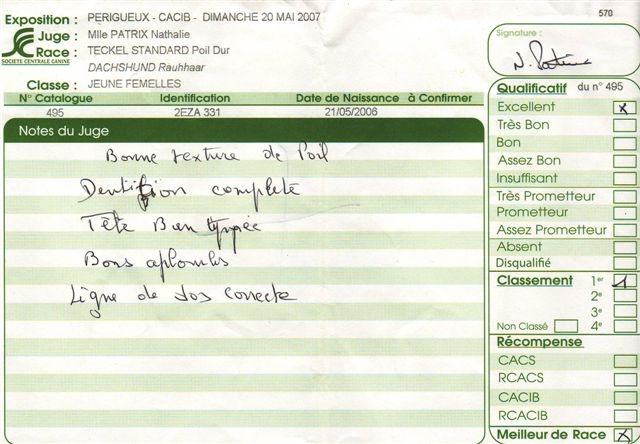 Exposition : PERIGUEUX - CACIB - DIMANCHE 20 MAI 2007
Juge : Mlle PATRIX Nathalie
Race : TECKEL STANDARD Poil Dur
SOCIETE CENTRALE CANINE
DACHSHUND Rauhhaar
Classe : JEUNE FEMELLES
N° Catalogue Identification Date de Naissance à Confirmer
495 2EZA 331 21/05/2006
Notes du Juge
Bonne texture de Poil
Dentition complète
Tête Bien typée
Bons aplombs
Ligne de dos correcte
570
Signature :
N. Patrix
Qualificatif du n° 495
Excellent x
Très Bon
Bon
Assez Bon
Insuffisant
Très Prometteur
Prometteur
Assez Prometteur
Absent
Disqualifié
Classement 1er 1
2e
3e
Non Classé 4e
Récompense
CACS
RCACS
CACIB
RCACIB
Meilleur de Race x